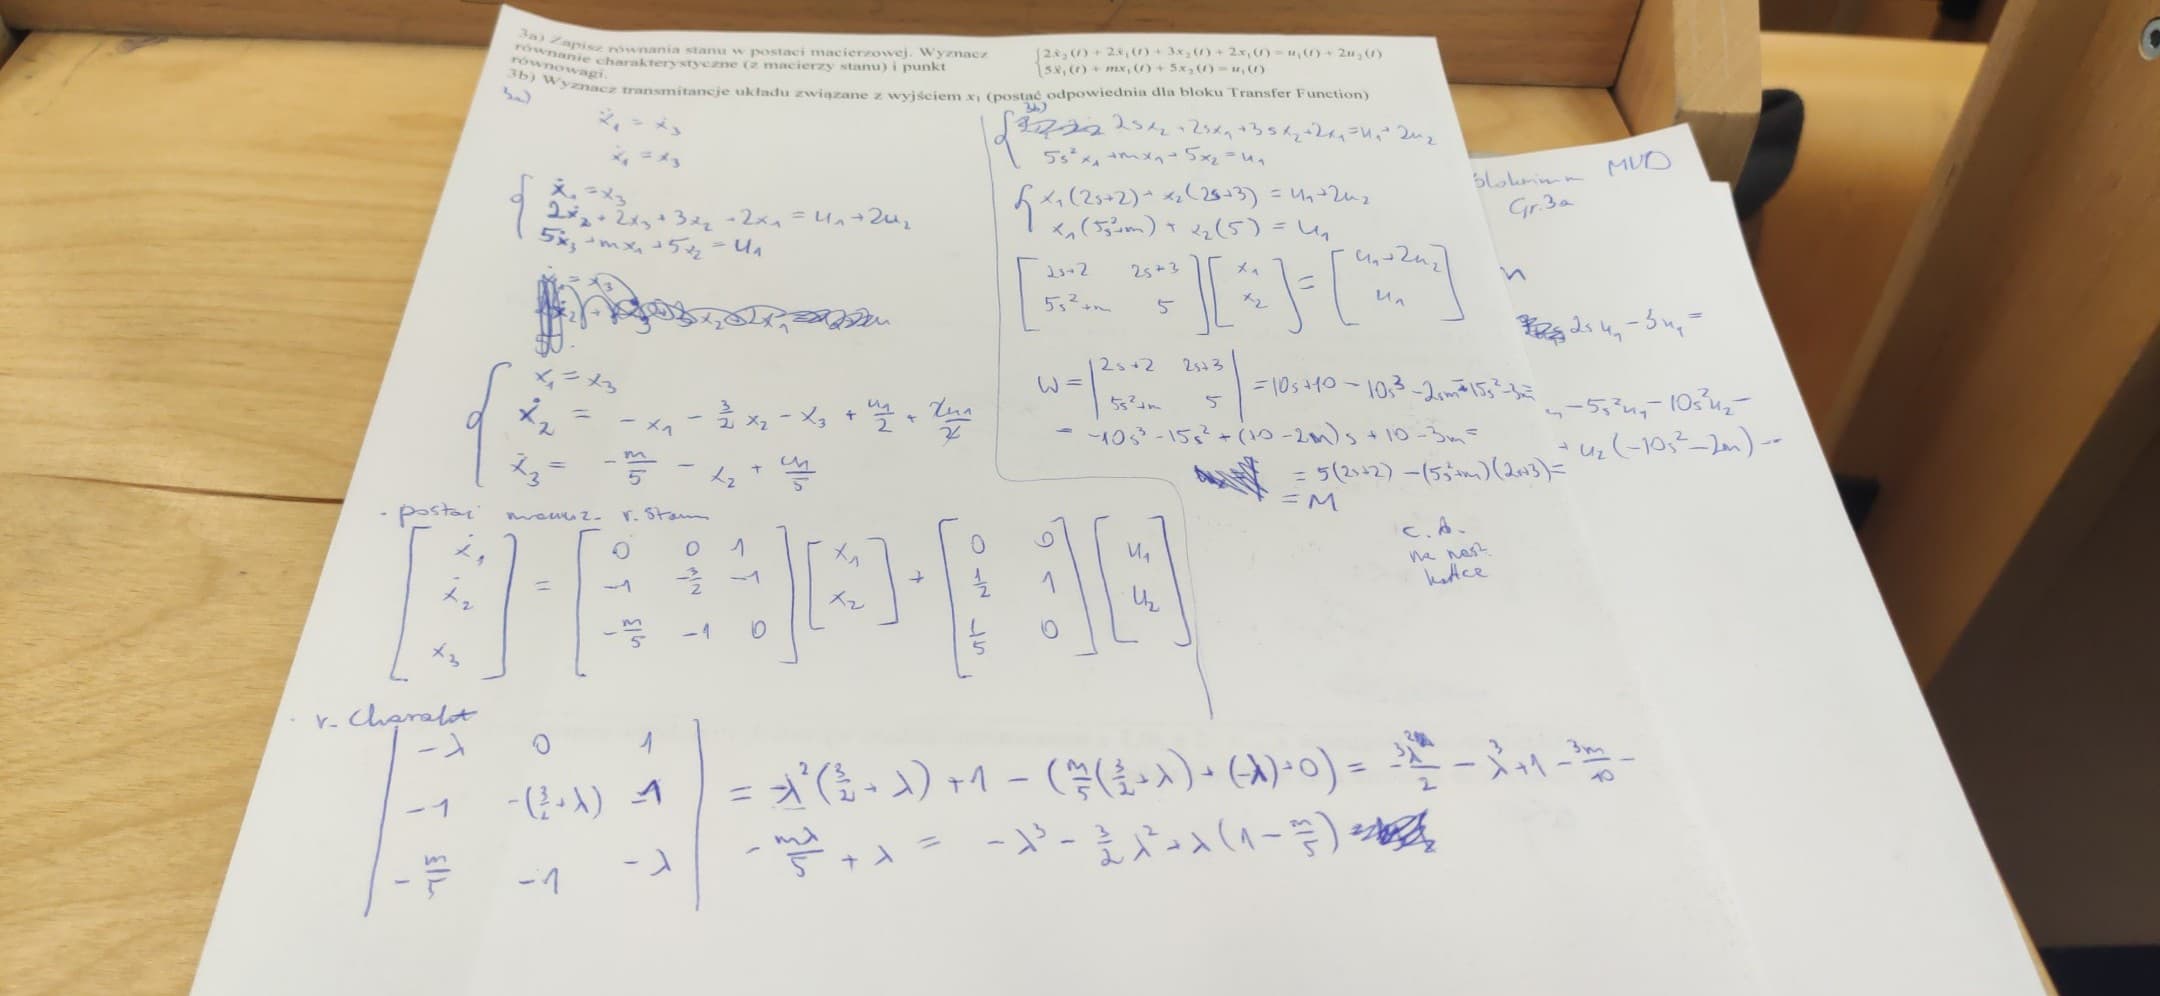 3a) Zapisz równania stanu w postaci macierzowej. Wyznacz
równanie charakterystyczne (z macierzy stanu) i punkt
równowagi.
{ 2ẋ₂(t) + 2ẋ₁(t) + 3x₂(t) + 2x₁(t) = u₁(t) + 2u₂(t)
5ẍ₁(t) + mx₁(t) + 5x₂(t) = u₁(t)
3b) Wyznacz transmitancje układu związane z wyjściem x₁ (postać odpowiednia dla bloku Transfer Function)
3a)
ẋ₁ = x₃
ẋ₁ = x₃
{ ẋ₁ = x₃
2ẋ₂ + 2x₃ + 3x₂ + 2x₁ = u₁ + 2u₂
5ẋ₃ + mx₁ + 5x₂ = u₁
{ ẋ₁ = x₃
ẋ₂ = -x₁ - 3/2 x₂ - x₃ + u₁/2 + 2u₁/2
ẋ₃ = -m/5 - x₂ + u₁/5
- postać r. stanu
[ ẋ₁ ẋ₂ x₃ ] = [ 0 0 1
-1 -3/2 -1
-m/5 -1 0 ] [ x₁ x₂ ] + [ 0 0
1/2 1
1/5 0 ] [ u₁ u₂ ]
r. Charakt
| -λ 0 1
-1 -(3/2+λ) -1
-m/5 -1 -λ |
= -λ²(3/2 + λ) + 1 - (m/5(3/2+λ) + (-λ)+0) = -3λ²/2 - λ³ + 1 - 3m/10 -
- mλ/5 + λ = -λ³ - 3/2 λ² + λ(1 - m/5)
3b)
{ 2sx₂ + 2sx₁ + 3sx₂ + 2x₁ = u₁ + 2u₂
5s²x₁ + mx₁ + 5x₂ = u₁
{ x₁(2s+2) + x₂(2s+3) = u₁ + 2u₂
x₁(5s²+m) + x₂(5) = u₁
[ 2s+2 2s+3
5s²+m 5 ] [ x₁ x₂ ] = [ u₁+2u₂ u₁ ]
W = | 2s+2 2s+3
5s²+m 5 | = 10s+10 - 10s³ - 2sm - 15s² - 3m =
= -10s³ - 15s² + (10-2m)s + 10 - 3m =
= 5(2s+2) - (5s²+m)(2s+3) =
= M
c.d.
na nast.
kartce
MUD
Gr.3a
2s u₁ - 3u₁ =
- 5s²u₁ - 10s²u₂ -
+ u₂(-10s² - 2m) -